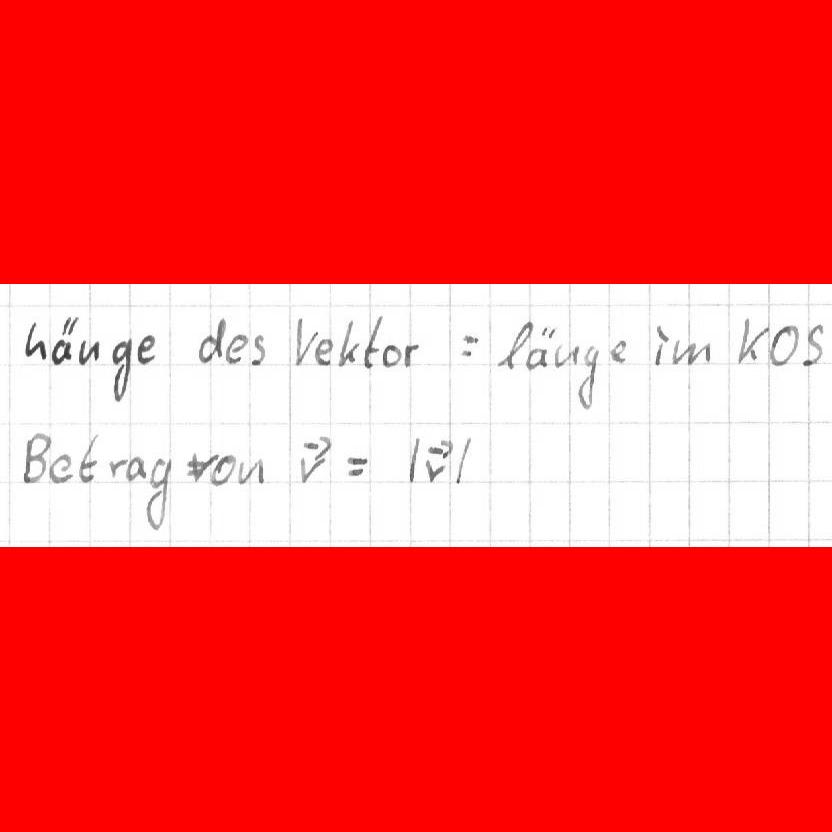 Länge des Vektor = länge im KOS
Betrag von v⃗ = |v⃗|